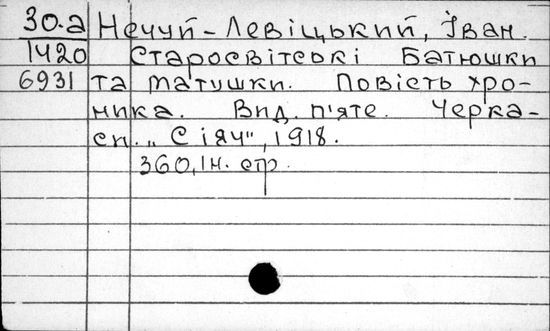 30.а Нечуй-Левіцький, Іван.
1420 Старосвітські Батюшки
6931 та матушки. Повість хро-
ника. Вид. п'яте. Черка-
си. „Сіяч", 1918.
360,1н. стр.